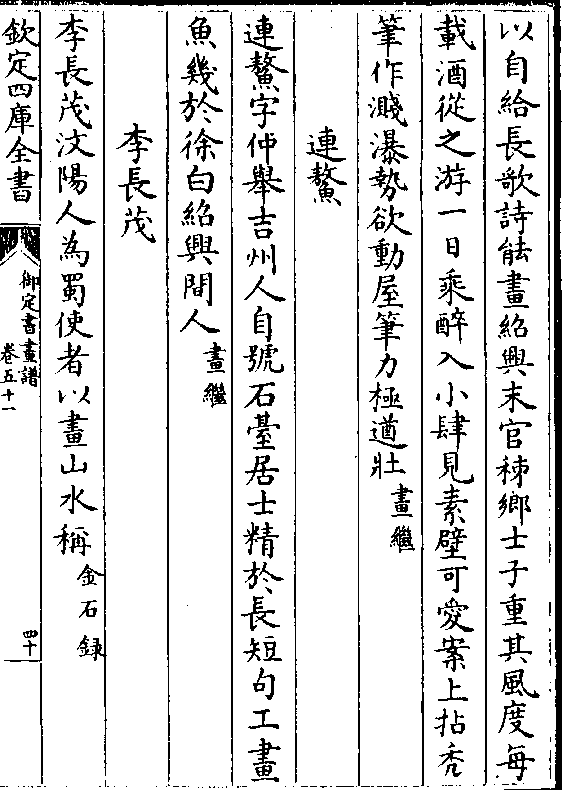 以自給長歌詩能畫紹興末官秣鄉士子重其風度每
載酒從之游一日乘醉入小肆見素壁可愛案上拈禿
筆作濺瀑勢欲動屋筆力極遒壯畫繼
連鰲
連鰲字仲舉吉州人自號石臺居士精於長短句工畫
魚幾於徐白紹興間人畫繼
李長茂
李長茂汶陽人為蜀使者以畫山水稱金石録
欽定四庫全書
御定書畫譜
卷五十一
四十